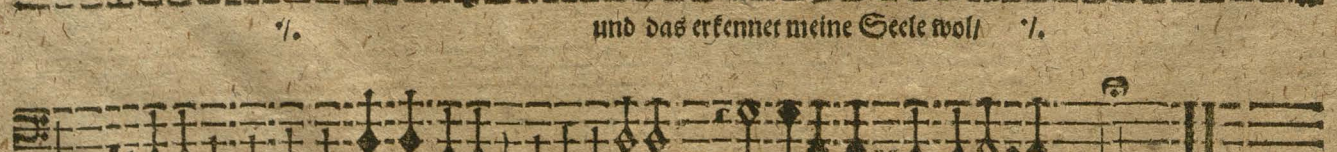 ·/. und das erkennet meine Seele wol/ ·/.